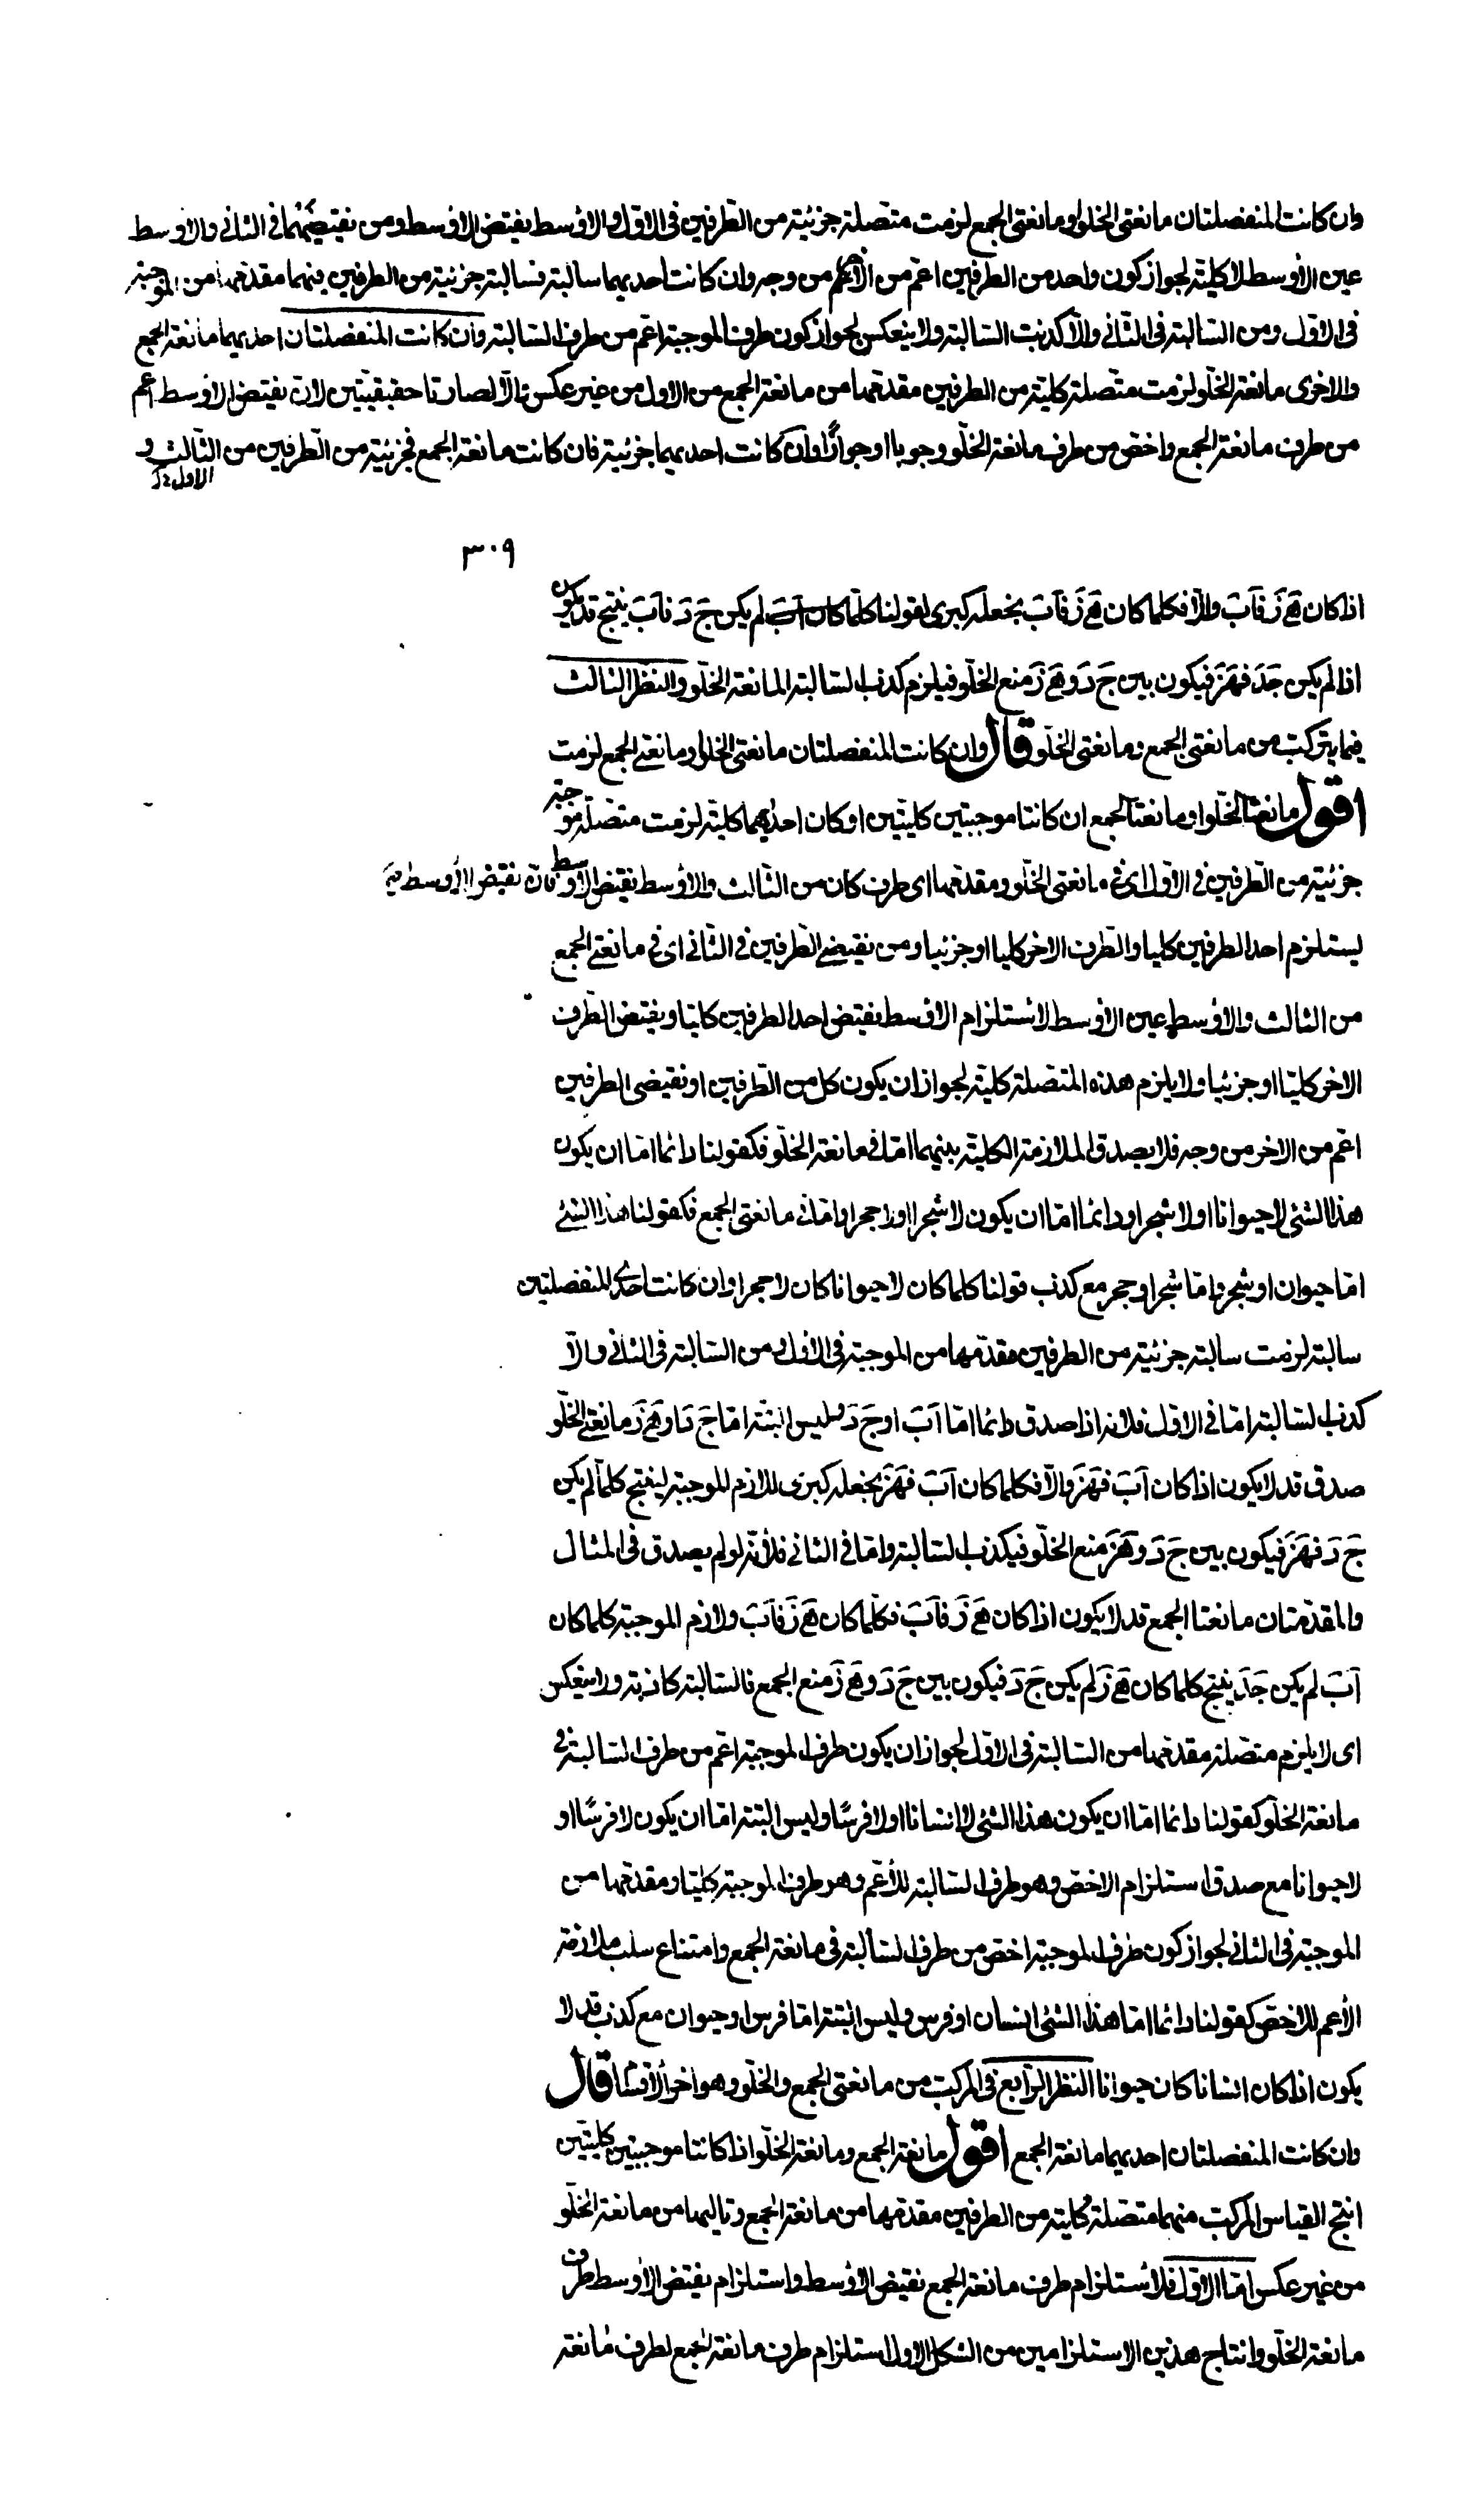 وان كانت المنفصلتان مانعتى الخلو او مانعتى الجمع لزمت متصلة جزئية من الطرفين فى الاول والاوسط نقيض الاوسط ومن نقيضيهما فى الثانى والاوسط
عين الاوسط لا كلية لجواز كون واحد من الطرفين اعم من الاخر من وجه وان كانت احديهما سالبة فسالبة جزئية من الطرفين فيهما مقدمها من الموجبة
فى الاول ومن السالبة فى الثانى والا كذبت السالبة ولا ينعكس لجواز كون طرف الموجبة اعم من طرف السالبة وان كانت المنفصلتان احديهما مانعة الجمع
والاخرى مانعة الخلو لزمت متصلة كلية من الطرفين مقدمها من مانعة الجمع من الاول من غير عكس والا لصارتا حقيقيتين لان نقيض الاوسط اعم
من طرف مانعة الجمع واخص من طرف مانعة الخلو وجوبا او جوازًا وان كانت احديهما جزئية فان كانت مانعة الجمع فجزئية من الطرفين من الثالث و
الاول
٣٠٩
اذا كان هَ زَ فاَبَ والا فكلما كان هَ زَ فاَبَ نجعله كبرى لقولنا كلما لم يكن جَ دَ فاَبَ ينتج قد يكون
اذا لم يكن جَدَ فهَزَ فيكون بين جَ دَ وهَ زَ منع الخلو فيلزم كذب السالبة المانعة الخلو والنظر الثالث
فيما يتركب من مانعتى الجمع ومانعتى الخلو قال وان كانت المنفصلتان مانعتى الخلو او مانعتى الجمع لزمت
اقول مانعتا الخلو او مانعتا الجمع ان كانتا موجبتين كليتين او كان احديهما كلية لزمت متصلة موجبة
جزئية من الطرفين فى الاول اى فى مانعتى الخلو ومقدمها اى طرف كان من الثالث والاوسط نقيض الاوسط فان نقيض الاوسط فيه
يستلزم احد الطرفين كليا والطرف الاخر كليا او جزئيا ومن نقيضى الطرفين فى الثانى اى فى مانعتى الجمع
من الثالث والاوسط عين الاوسط لاستلزام الاوسط نقيض احد الطرفين كليا ونقيض الطرف
الاخر كليا او جزئيا ولا يلزم هذه المتصلة كلية لجواز ان يكون كل من الطرفين او نقيضى الطرفين
اعم من الاخر من وجه فلا يصدق الملازمة الكلية بينهما اما فى مانعة الخلو فكقولنا دائما اما ان يكون
هذا الشئ لا حيوانا او لا شجرا ودائما اما ان يكون لا شجرا او لا حجرا واما فى مانعتى الجمع فكقولنا هذا الشئ
اما حيوان او شجر واما شجر او حجر مع كذب قولنا كلما كان لا حيوانا كان لا حجرا وان كانت احدى المنفصلتين
سالبة لزمت سالبة جزئية من الطرفين مقدمها من الموجبة فى الاول ومن السالبة فى الثانى والا
كذبت السالبة اما فى الاول فلانه اذا صدق دائما اما اَبَ او جَ دَ وليس البتة اما جَ دَ او هَ زَ مانعتى الخلو
صدق قد لا يكون اذا كان اَبَ فهَزَ والا فكلما كان اَبَ فهَزَ نجعله كبرى للازم الموجبة لينتج كلما لم يكن
جَ دَ فهَزَ فيكون بين جَ دَ وهَزَ منع الخلو فيكذب السالبة واما فى الثانى فلانه لو لم يصدق فى المثال
والمقدمتان مانعتا الجمع قد لا يكون اذا كان هَ زَ فاَبَ فكلما كان هَ زَ فاَبَ ولازم الموجبة كلما كان
اَبَ لم يكن جَدَ ينتج كلما كان هَ زَ لم يكن جَ دَ فيكون بين جَ دَ وهَ زَ منع الجمع فالسالبة كاذبة ولا ينعكس
اى لا يلزم متصلة مقدمها من السالبة فى الاول لجواز ان يكون طرف الموجبة اعم من طرف السالبة فى
مانعة الخلو كقولنا دائما اما ان يكون هذا الشئ لا انسانا او لا فرسًا وليس البتة اما ان يكون لا فرسًا او
لا حيوانا مع صدق استلزام الاخص وهو طرف السالبة للاعم وهو طرف الموجبة كليا ومقدمها من
الموجبة فى الثانى لجواز كون طرف الموجبة اخص من طرف السالبة فى مانعة الجمع وامتناع سلب ملازمة
الاعم للاخص كقولنا دائما اما هذا الشئ انسان او فرس وليس البتة اما فرس او حيوان مع كذب قد لا
يكون اذا كان انسانا كان حيوانا النظر الرابع فى المركب من مانعتى الجمع والخلو وهو اخر الاقسام قال
وان كانت المنفصلتان احديهما مانعة الجمع اقول مانعة الجمع ومانعة الخلو اذا كانتا موجبتين كليتين
انتج القياس المركب منهما متصلة كلية من الطرفين مقدمها من مانعة الجمع وتاليها من مانعة الخلو
من غير عكس اما الاول فلاستلزام طرف مانعة الجمع نقيض الاوسط واستلزام نقيض الاوسط طرف
مانعة الخلو وانتاج هذين الاستلزامين من الشكل الاول استلزام طرف مانعة الجمع لطرف مانعة